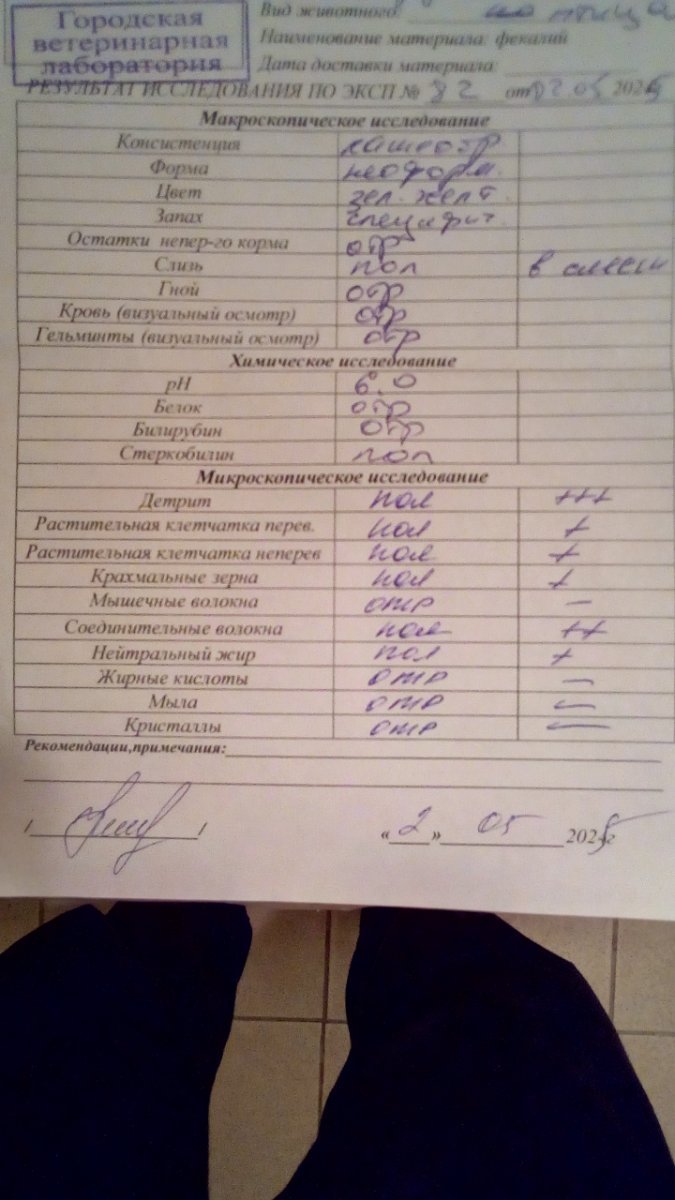 Городская
ветеринарная
лаборатория
Вид животного:
Наименование материала: фекалий
Дата доставки материала:
РЕЗУЛЬТАТ ИССЛЕДОВАНИЯ ПО ЭКСП № 82 от 02 05 2025
Макроскопическое исследование
Консистенция кашеобр.
Форма неоформ.
Цвет зел. желт.
Запах специфич.
Остатки непер-го корма отр
Слизь пол в смеси
Гной отр
Кровь (визуальный осмотр) отр
Гельминты (визуальный осмотр) отр
Химическое исследование
pH 6.0
Белок отр
Билирубин отр
Стеркобилин пол
Микроскопическое исследование
Детрит пол +++
Растительная клетчатка перев. пол +
Растительная клетчатка неперев пол +
Крахмальные зерна пол +
Мышечные волокна отр –
Соединительные волокна пол ++
Нейтральный жир пол +
Жирные кислоты отр –
Мыла отр –
Кристаллы отр –
Рекомендации,примечания:
/ /
« 2 » 05 2025г